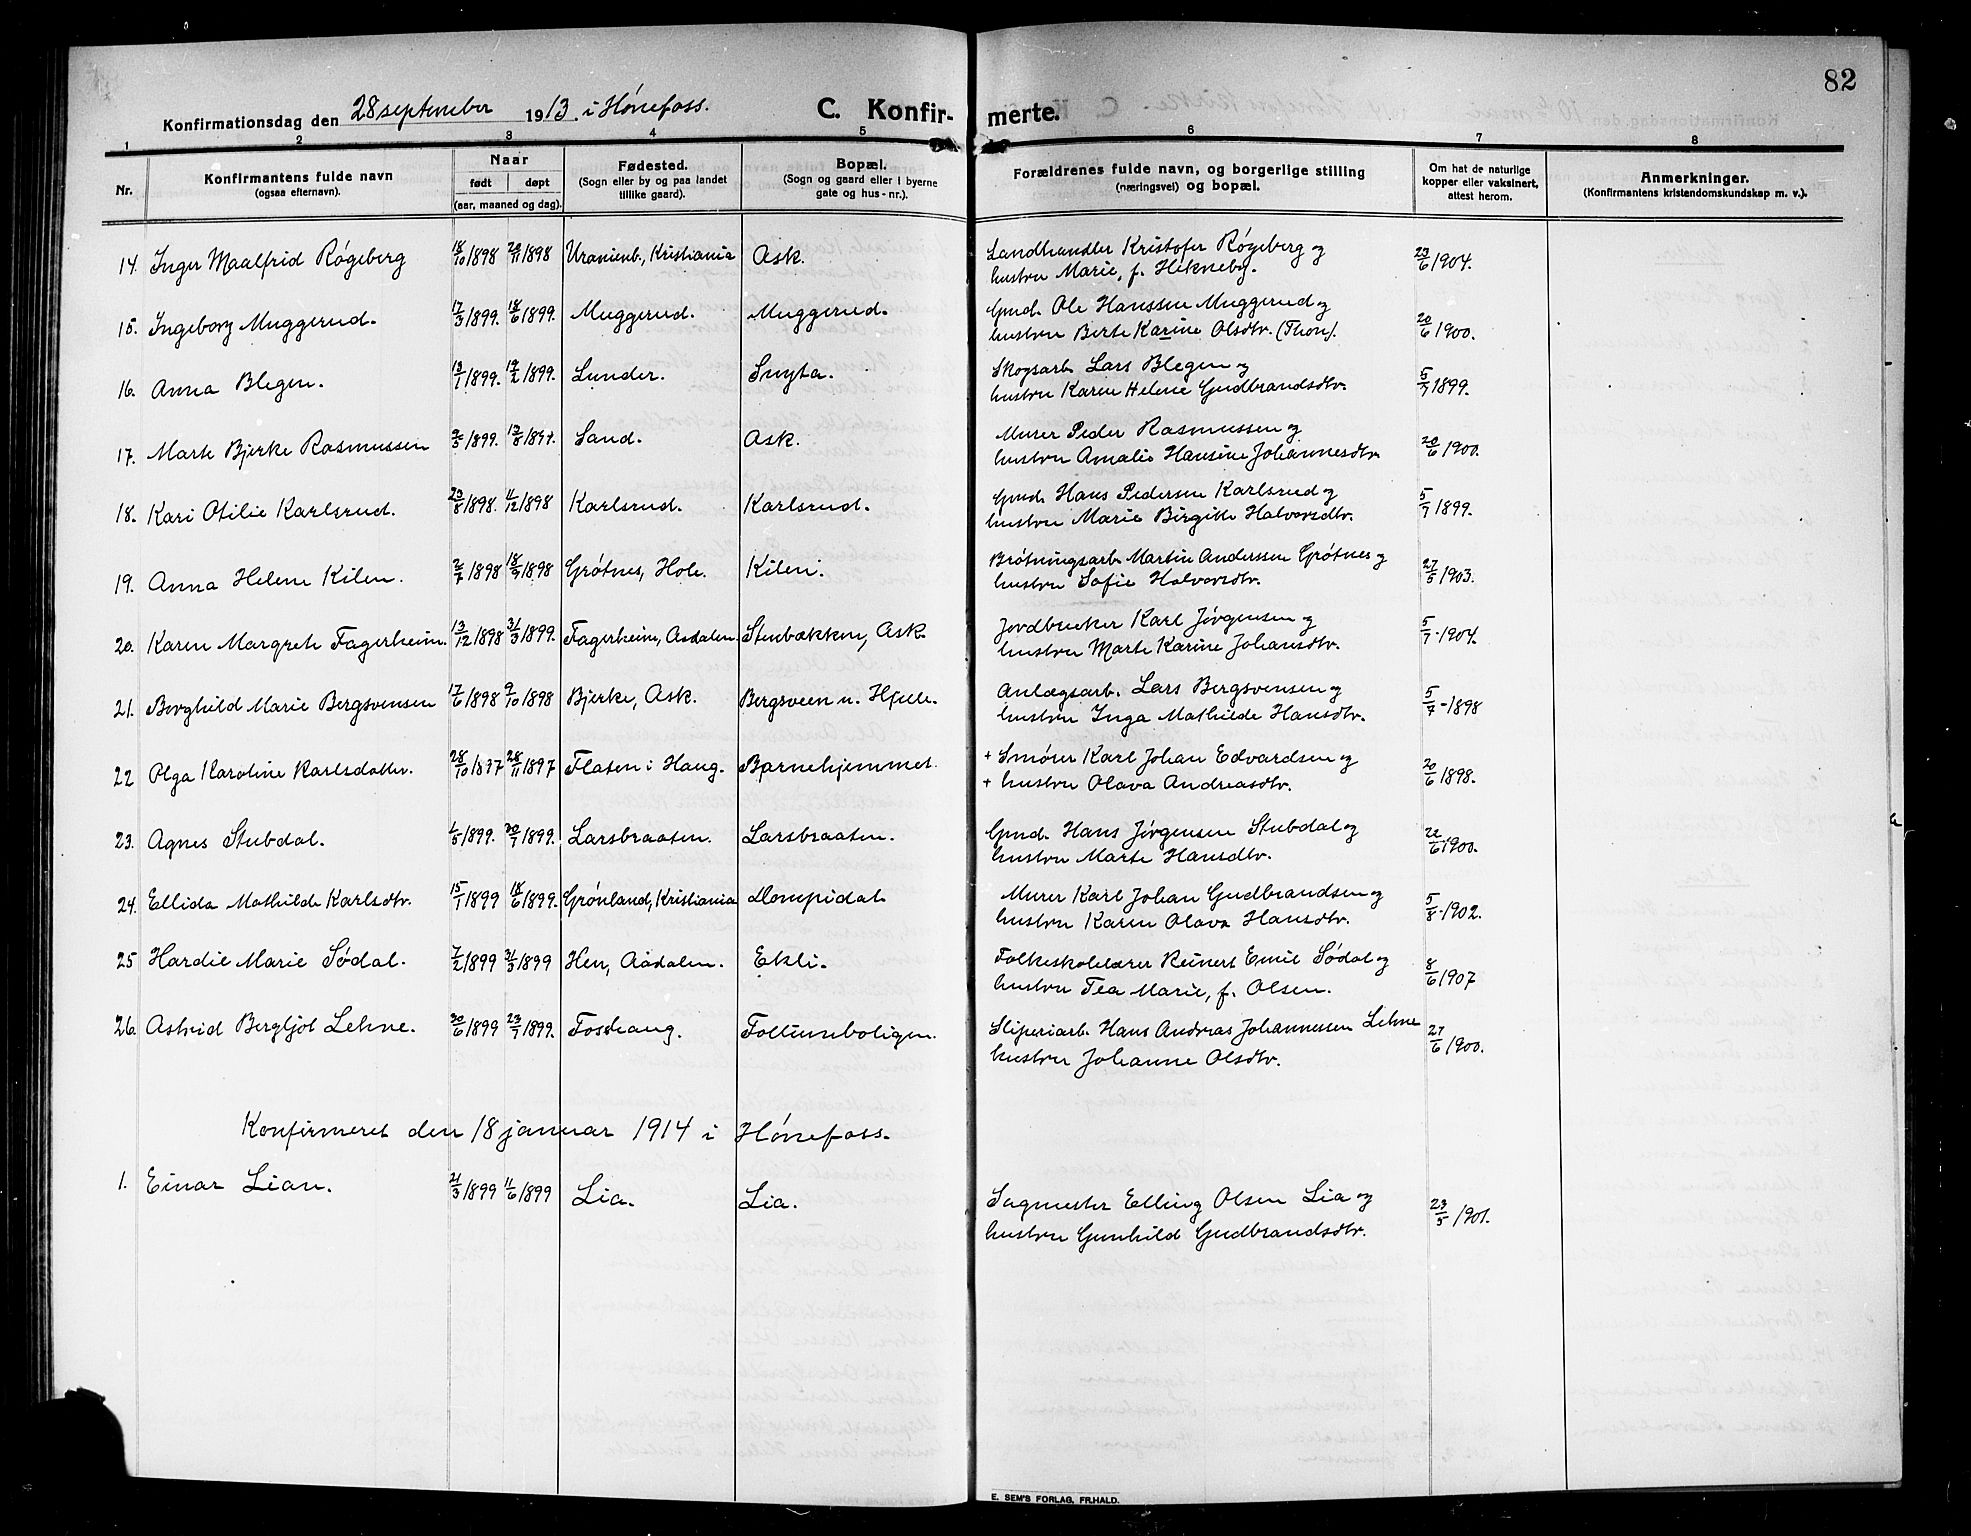 82
Konfirmationsdag den 28 september 1913 i Hønefoss. C. Konfirmerte.
1 2 3 4 5 6 7 8
Nr. Konfirmantens fulde navn (ogsaa efternavn). Naar født døpt (aar, maaned og dag). Fødested. (Sogn eller by og paa landet tillike gaard). Bopæl. (Sogn og gaard eller i byerne gate og hus-nr.). Forældrenes fulde navn, og borgerlige stilling (næringsvei) og bopæl. Om hat de naturlige kopper eller vaksinert, attest herom. Anmerkninger. (Konfirmantens kristendomskundskap m. v.).
14. Inger Maalfrid Røgeberg 18/10 1898 20/11 1898 Uranienb., Kristiania Ask. Landhandler Kristofer Røgeberg og 23/6 1904.
hustru Marie, f. Hikneby.
15. Ingeborg Muggerud. 17/3 1899. 18/6 1899. Muggerud. Muggerud. Gmd. Ole Hanssen Muggerud og 20/6 1900.
hustru Berte Karine Olsdtr. (Thon).
16. Anna Blegen. 13/1 1899. 19/2 1899. Lunder. Snyta. Skogsarb. Lars Blegen og 5/7 1899.
hustru Karen Helene Gudbrandsdtr.
17. Marte Bjerke Rasmussen 2/5 1899. 13/8 1899. Sand. Ask. Murer Peder Rasmussen og 20/6 1900.
hustru Amalie Hansine Johannesdtr
18. Kari Otilie Karlsrud. 23/8 1898. 4/12 1898 Karlsrud. Karlsrud. Gmd. Hans Pedersen Karlsrud og 5/7 1899.
hustru Marie Birgitte Halvorsdtr.
19. Anna Helene Kilen. 2/7 1898 18/9 1898 Grøtnes, Hole. Kilen. Brøtningsarb. Martin Anderssen Grøtnes og 27/5 1903.
hustru Sofie Halvorsdtr.
20. Karen Margrete Fagerheim. 13/12 1898 31/3 1899. Fagerheim, Aadalen. Stenbækken, Ask. Jordbruker Karl Jørgensen og 5/7-1904.
hustru Marte Karine Johansdtr.
21. Borghild Marie Bergsvensen 17/6 1898 9/10 1898 Bjerke, Ask. Bergsveen u. Hjelle. Anlægsarb. Lars Bergsvensen og 5/7-1898
hustru Inga Mathilde Hansdtr.
22 Olga Karoline Karlsdatter. 28/10 1897 28/11 1897 Flaten i Haug. Barnehjemmet. + Smører Karl Johan Edvardsen og 20/6 1898.
+ hustru Olava Andreasdtr.
23. Agnes Stubdal. 1/5 1899. 30/7 1899. Larsbraaten. Larsbraaten. Gmd. Hans Jørgensen Stubdal og 22/6 1900.
hustru Marte Hansdtr.
24. Ellida Mathilde Karlsdtr. 15/1 1899 18/6 1899. Grønland, Kristiania Dompidal. Murer Karl Johan Gudbrandsen og 5/8-1902.
hustru Karen Olava Hansdtr.
25 Hardie Marie Sødal. 7/2 1899 31/3 1899 Hen, Aadalen. Ekli. Folkeskolelærer Reinert Emil Sødal og 8/6 1907
hustru Tea Marie, f. Olsen.
26. Astrid Bergljot Lehne. 30/6 1899 23/7 1899. Fosshaug. Follumboligen. Sliperiarb. Hans Andreas Johannessen Lehne 27/6 1900.
hustru Johanne Olsdtr.
Konfirmeret den 18 januar 1914 i Hønefoss.
1. Einar Lian. 21/3 1899 11/6 1899 Lia. Lia. Sagmester Elling Olsen Lia og 23/5 1901.
hustru Gunhild Gudbrandsdtr.
E. SEM'S FORLAG, FR.HALD.